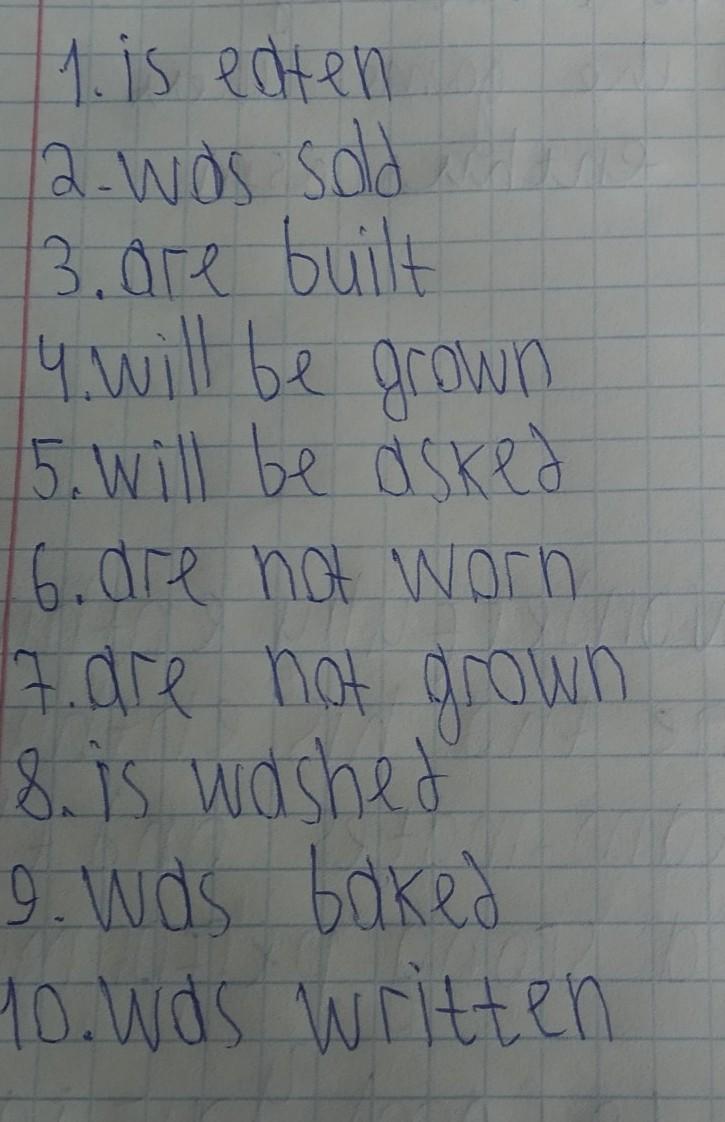 1. is eaten
2. was sold
3. are built
4. will be grown
5. will be asked
6. are not worn
7. are not grown
8. is washed
9. was baked
10. was written